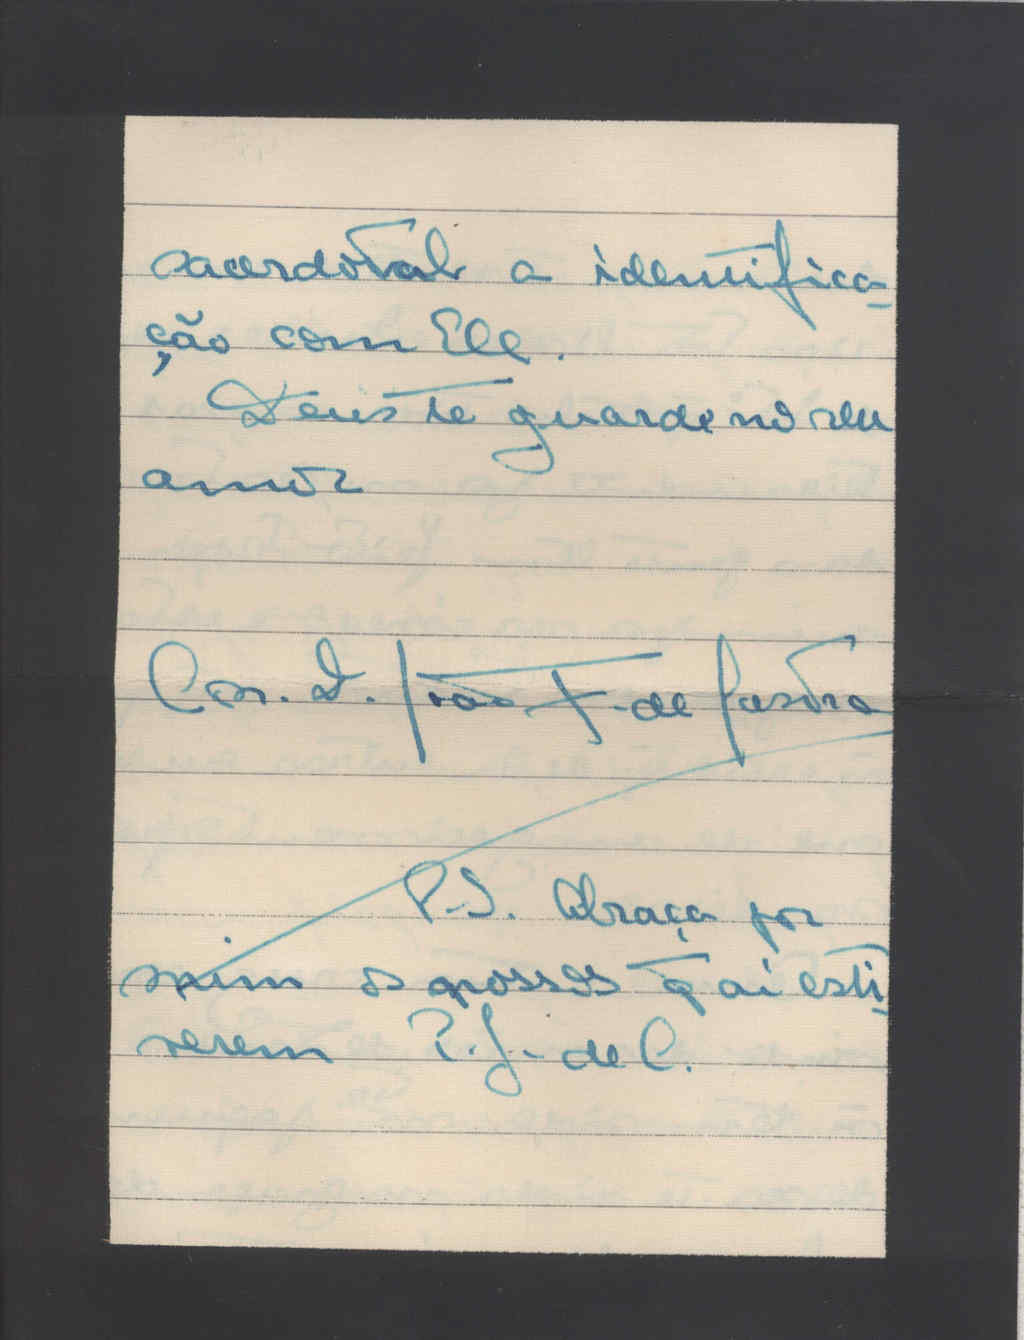 sacerdotal a identifica-
ção com Ele.
Deus te guarde no seu
amor
Con. D. João F. de Castro
P.S. Abraça por
mim os nossos q̄ aí esti-
verem P. J. de C.